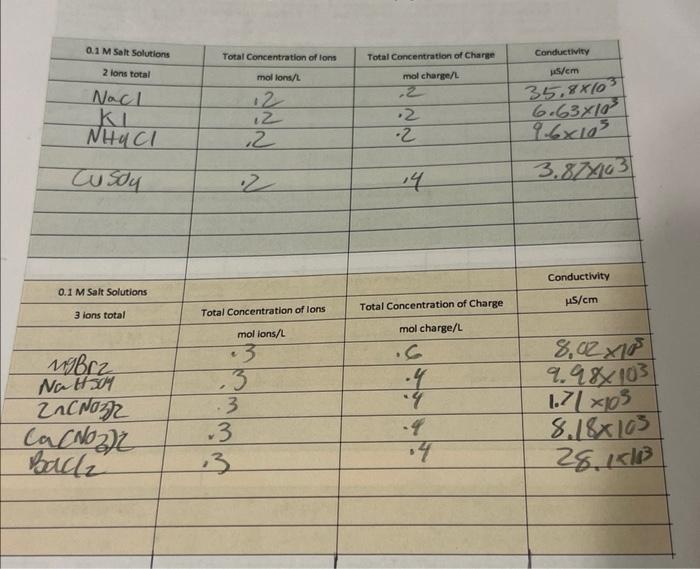 0.1 M Salt Solutions Total Concentration of Ions Total Concentration of Charge Conductivity
2 ions total mol ions/L mol charge/L µS/cm
NaCl .2 .2 35.8x10³
KI .2 .2 6.63x10³
NH4Cl .2 .2 9.6x10³
CuSO4 .2 .4 3.87x10³
0.1 M Salt Solutions Conductivity
3 ions total Total Concentration of Ions Total Concentration of Charge µS/cm
mol ions/L mol charge/L
MgBr2 .3 .6 8.02x10³
NaHSO4 .3 .4 9.98x10³
Zn(NO3)2 .3 .4 1.71x10³
Ca(NO3)2 .3 .4 8.18x10³
BaCl2 .3 .4 28.1x10³